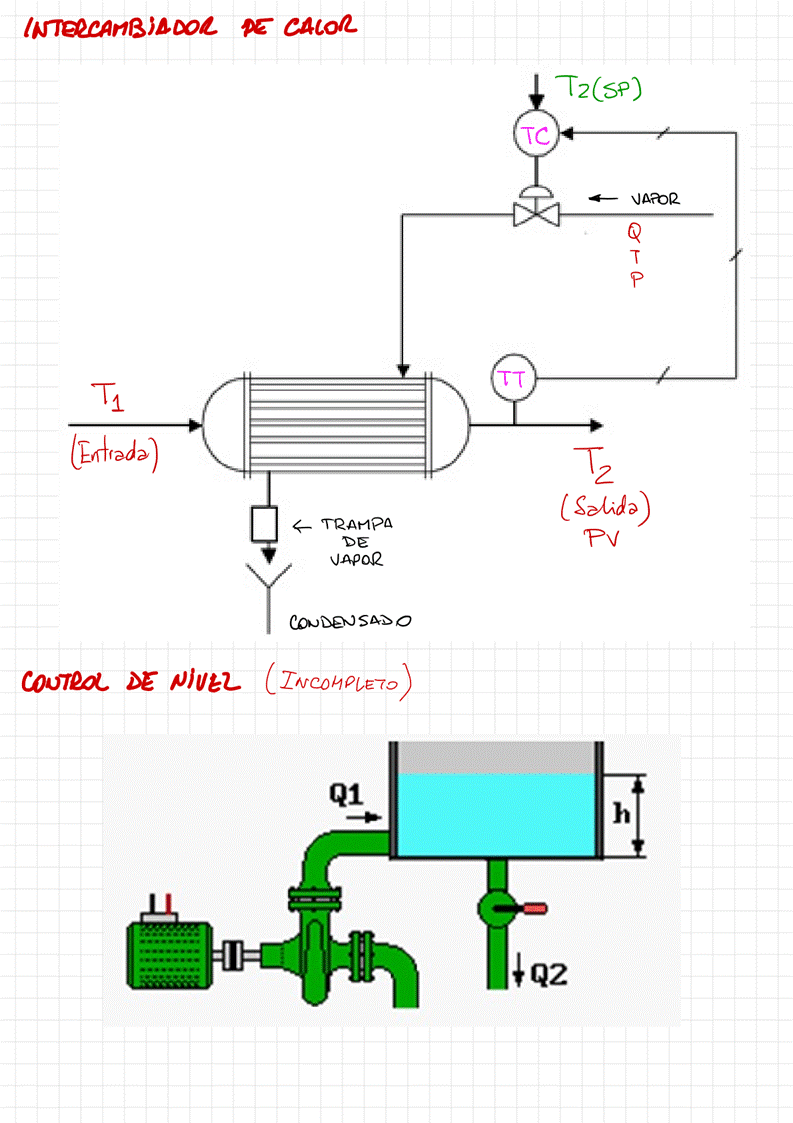 INTERCAMBIADOR DE CALOR
T2(SP)
TC
← VAPOR
Q
T
P
TT
T1
(Entrada)
T2
(Salida)
PV
← TRAMPA
DE
VAPOR
CONDENSADO
CONTROL DE NIVEL (INCOMPLETO)
Q1
h
Q2